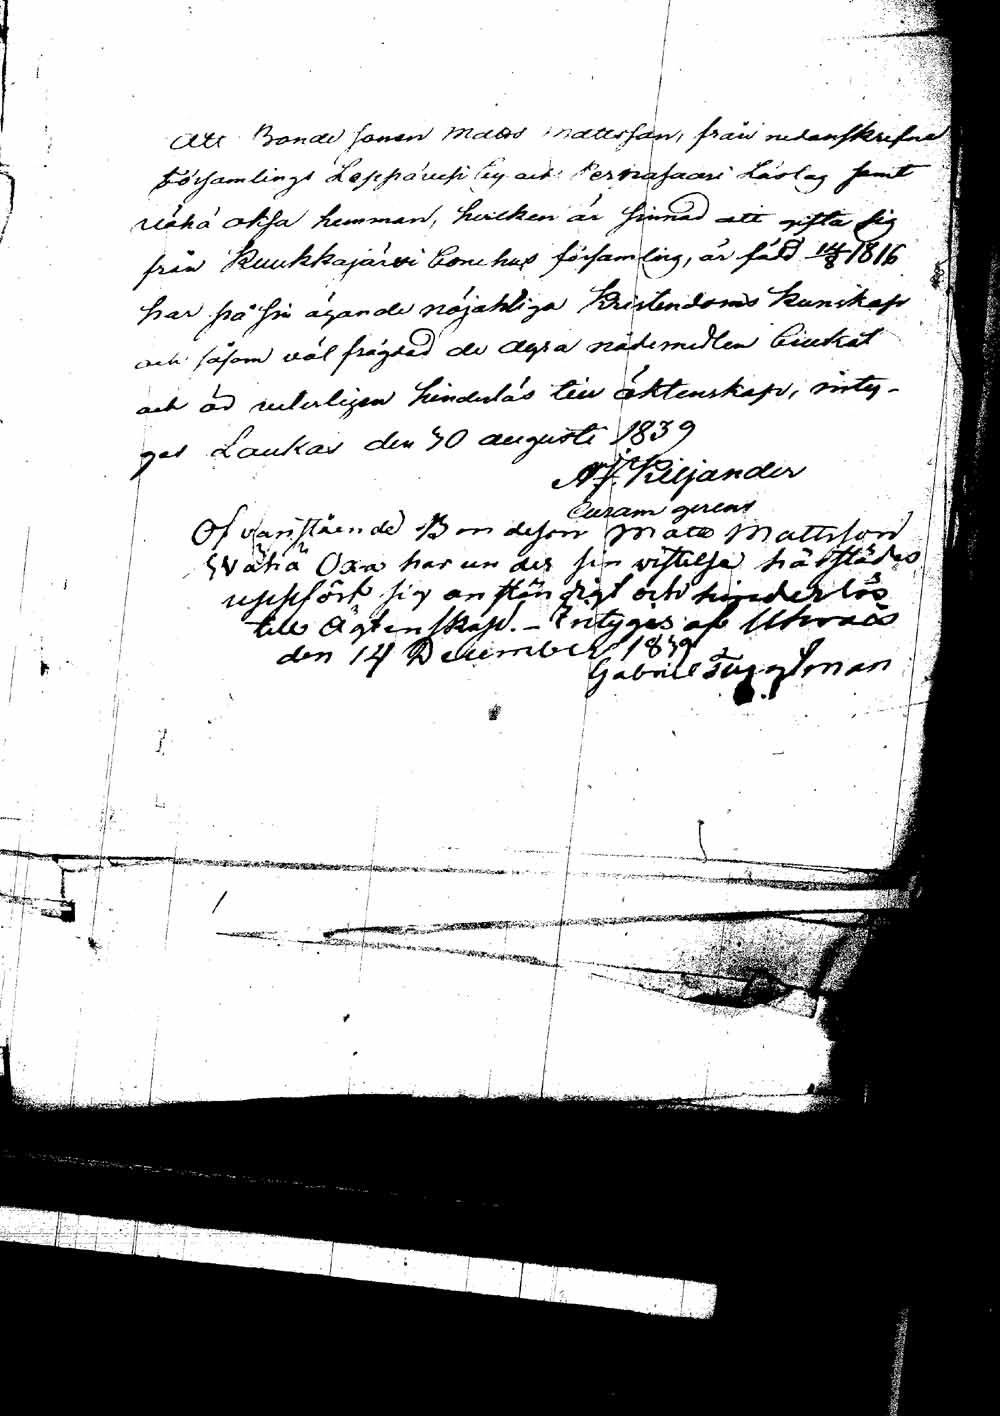 Att Bonde sonen Matts Mattsson, från nedanskrefne
församlings Leppävesi by och Pernasaari Läslag samt
wähä oksa hemman, hvilken är sinnad att gifta sig
från Kuukkajärvi församling, är född 14/8 1816
har på sin ägande nöjaktiga Kristendoms Kunskap
och såsom väl frägdad de dyra nådemedlen
och är hinderlös till äktenskap, intyg-
gas Laukas den 30 augusti 1839
A. J. Kiljander
Curam gerens
Ofvanstående Bondeson Mats Mattsson
Wähä Oxa har under sin vistelse härstädes
uppfört sig anständigt och hinderlös
till Ägtenskap. - Intygis af
den 14 December 1839
Gabriel